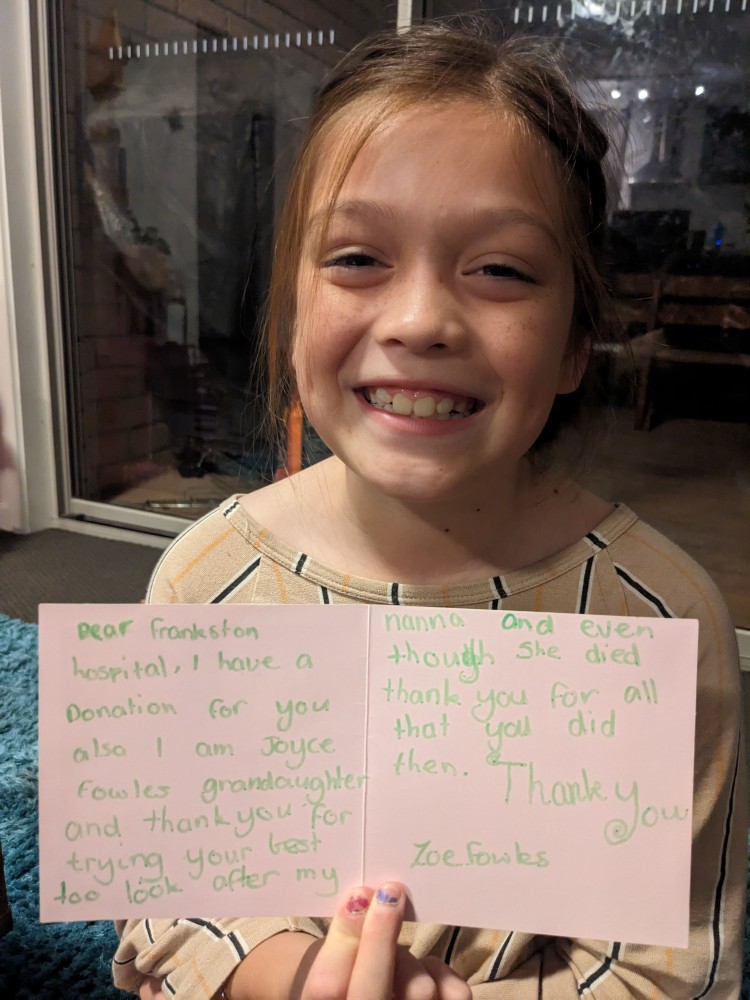 Dear Frankston
hospital, I have a
Donation for you
also I am Joyce
Fowles grandaughter
and thankyou for
trying your best
too look after my
nanna and even
though she died
thank you for all
that you did
then. Thank you
Zoe.Fowles